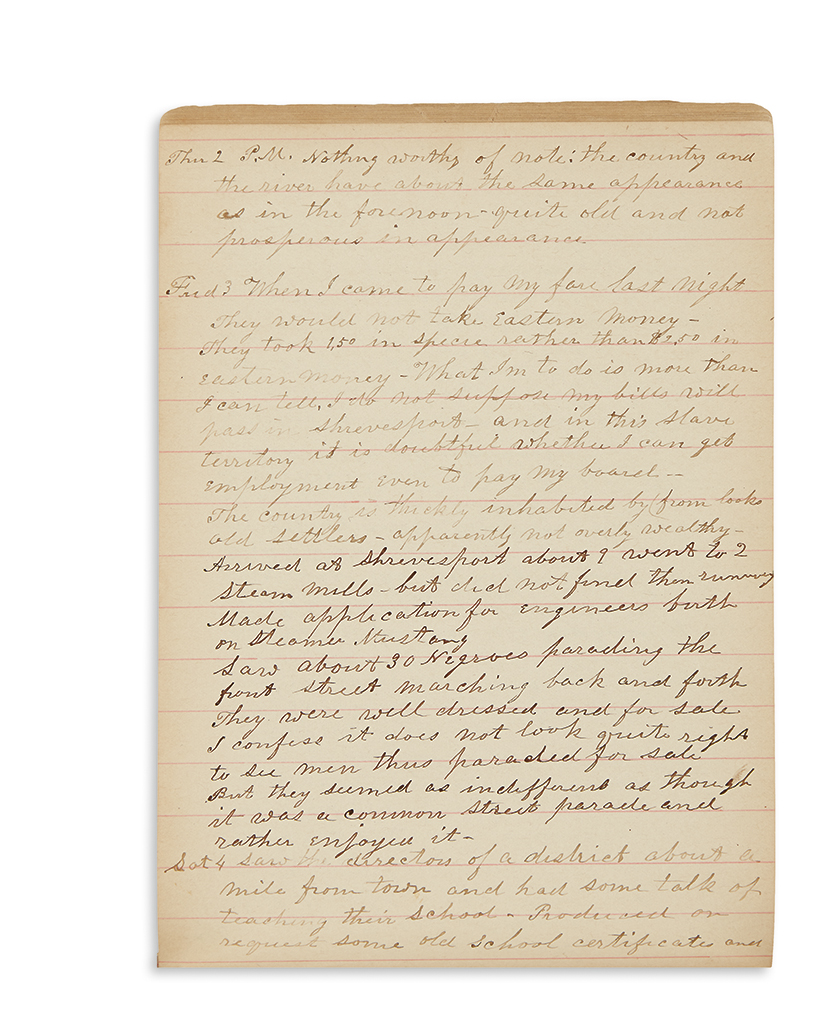 Thu 2 P.M. Nothing worthy of note: the country and
the river have about the same appearance
as in the forenoon - quite old and not
prosperous in appearance.
Frid 3 When I came to pay my fare last night
They would not take Eastern Money -
They took 1,50 in specie rather than $2,50 in
Eastern Money - What Im to do is more than
I can tell, I do not suppose my bills will
pass in Shrevesport - and in this slave
territory it is doubtful whether I can get
employment Even to pay my board -
The country is thickly inhabited by (from looks
old settlers - apparently not overly wealthy -
Arrived at Shrevesport about 9 went to 2
Steam Mills - but did not find them running
Made application for Engineers birth
on Steamer Mustang
Saw about 30 Negroes parading the
front street marching back and forth
They were well dressed and for sale
I confess it does not look quite right
to see men thus paraded for sale
But they seemed as indifferent as though
it was a common street parade and
rather enjoyed it -
Sat 4 Saw the directors of a district about a
mile from town and had some talk of
teaching their School - Produced on
request some old School certificates and